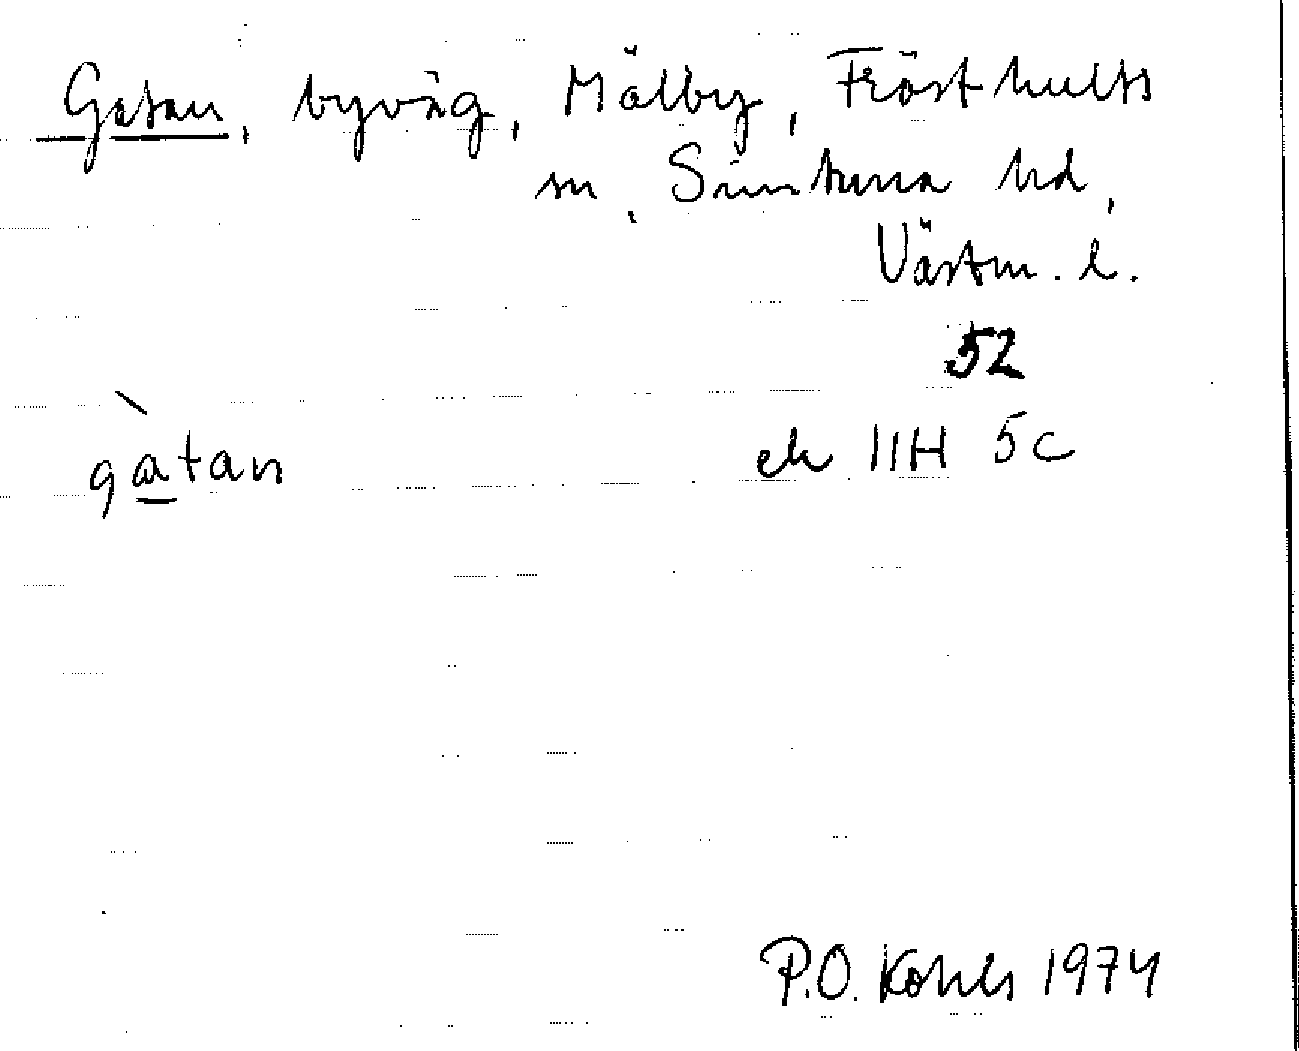 Gatan, byväg, Mälby, Frösthults
sn, Simtuna hd,
Västm. l.
52
gàtan ek 11H 5c
P.O. Kohls 1974